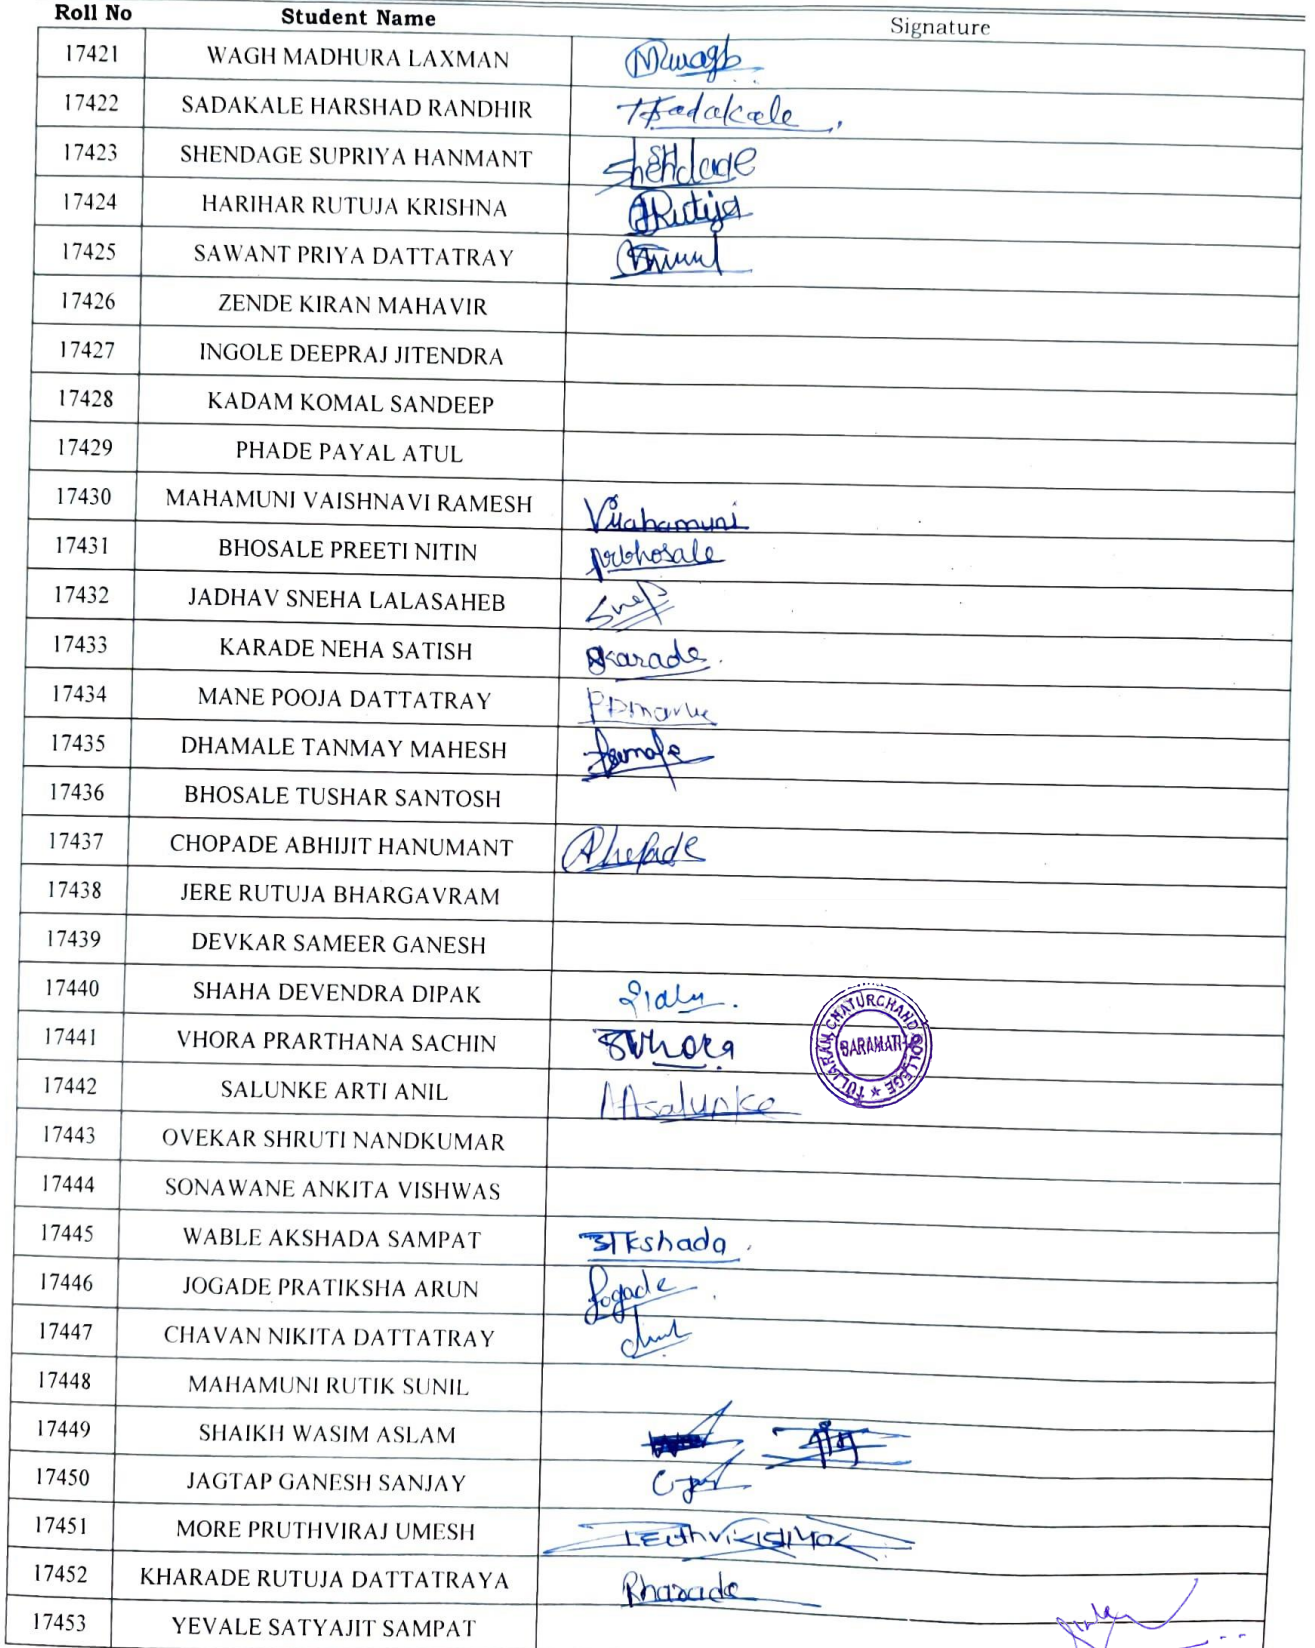 Roll No Student Name Signature
17421 WAGH MADHURA LAXMAN Mwagh
17422 SADAKALE HARSHAD RANDHIR HSadakale
17423 SHENDAGE SUPRIYA HANMANT
17424 HARIHAR RUTUJA KRISHNA
17425 SAWANT PRIYA DATTATRAY
17426 ZENDE KIRAN MAHAVIR
17427 INGOLE DEEPRAJ JITENDRA
17428 KADAM KOMAL SANDEEP
17429 PHADE PAYAL ATUL
17430 MAHAMUNI VAISHNAVI RAMESH Vmahamuni
17431 BHOSALE PREETI NITIN
17432 JADHAV SNEHA LALASAHEB
17433 KARADE NEHA SATISH Nkarade
17434 MANE POOJA DATTATRAY
17435 DHAMALE TANMAY MAHESH
17436 BHOSALE TUSHAR SANTOSH
17437 CHOPADE ABHIJIT HANUMANT
17438 JERE RUTUJA BHARGAVRAM
17439 DEVKAR SAMEER GANESH
17440 SHAHA DEVENDRA DIPAK
17441 VHORA PRARTHANA SACHIN
TULJARAM CHATURCHAND COLLEGE
BARAMATI
17442 SALUNKE ARTI ANIL AAsalunke
17443 OVEKAR SHRUTI NANDKUMAR
17444 SONAWANE ANKITA VISHWAS
17445 WABLE AKSHADA SAMPAT
17446 JOGADE PRATIKSHA ARUN Jogade
17447 CHAVAN NIKITA DATTATRAY
17448 MAHAMUNI RUTIK SUNIL
17449 SHAIKH WASIM ASLAM
17450 JAGTAP GANESH SANJAY
17451 MORE PRUTHVIRAJ UMESH
17452 KHARADE RUTUJA DATTATRAYA Rharade
17453 YEVALE SATYAJIT SAMPAT